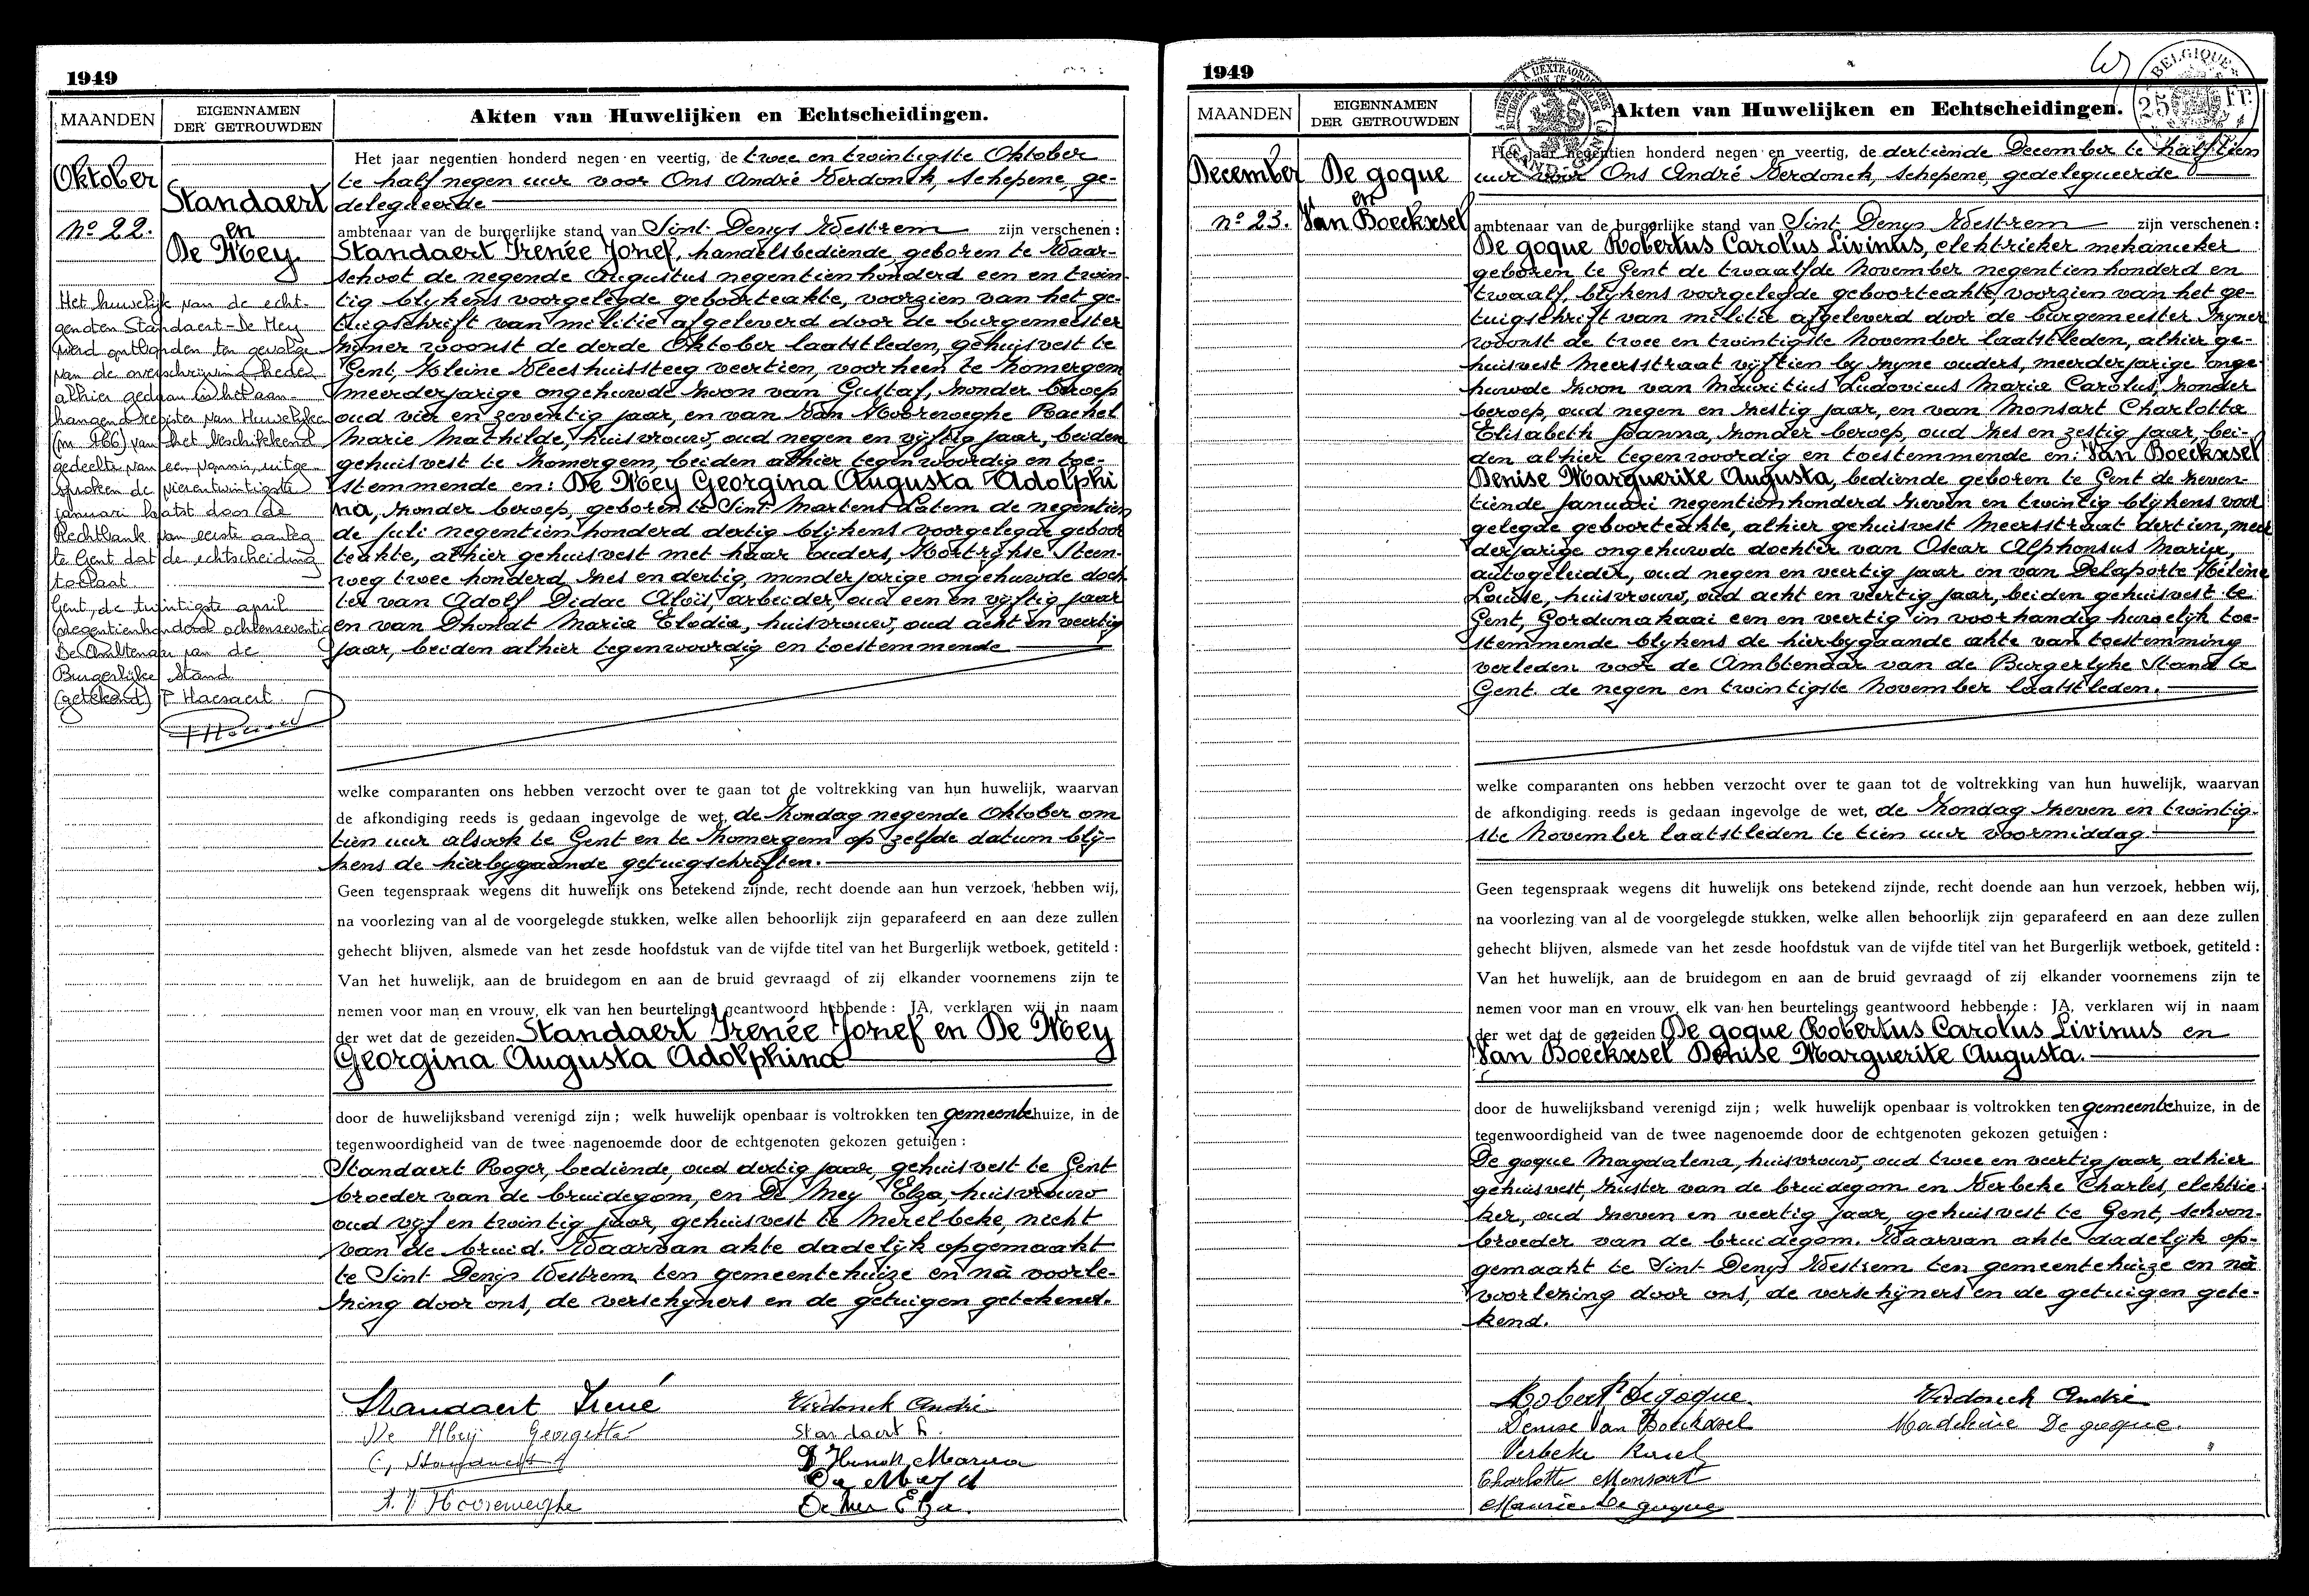 1949
MAANDEN
EIGENNAMEN
DER GETROUWDEN
Akten van Huwelijken en Echtscheidingen.
Oktober
nº 22.
Standaert
en
De Mey
Het huwelijk van de echt-
genoten Standaert-De Mey
werd ontbonden ten gevolge
van de overschrijving heden
alhier gedaan in het aan-
hangend register van Huwelijken
(nr 466) van het beschikkend
gedeelte van een vonnis, uitge-
sproken de vierentwintigste
januari laatst door de
Rechtbank van eerste aanleg
te Gent dat de echtscheiding
toelaat
Gent, de twintigste april
negentienhonderd achtenzeventig
De Ambtenaar van de
Burgerlijke Stand
(getekend) F Haesaert
Het jaar negentien honderd negen en veertig, de twee en twintigste Oktober
te half negen uur voor Ons André Verdonck, schepene, ge-
delegeerde
ambtenaar van de burgerlijke stand van Sint Denys Westrem zijn verschenen :
Standaert Irenée Jozef, handelsbediende, geboren te Waar-
schoot de negende Augustus negentienhonderd een en twin-
tig blijkens voorgelegde geboorteakte, voorzien van het ge-
tuigschrift van militie afgeleverd door de burgemeester
zijner woonst de derde Oktober laatstleden, gehuisvest te
Gent, Kleine Vleeshuissteeg veertien, voorheen te Zomergem
meerderjarige ongehuwde zoon van Gustaf, zonder beroep
oud vier en zeventig jaar, en van Van Hooreweghe Rachel
Marie Mathilde, huisvrouw, oud negen en vijftig jaar, beiden
gehuisvest te Zomergem, beiden alhier tegenwoordig en toe-
stemmende en: De Mey Georgina Augusta Adolphi
na, zonder beroep, geboren te Sint Martens Latem de negentien
de Juli negentien honderd dertig blijkens voorgelegde geboor
teakte, alhier gehuisvest met haar ouders, Kortrijkse Steen-
weg twee honderd zes en dertig, minderjarige ongehuwde doch
ter van Adolf Didac Aloïs, arbeider, oud een en vijftig jaar
en van Dhondt Maria Elodia, huisvrouw, oud acht en veertig
jaar, beiden alhier tegenwoordig en toestemmende
welke comparanten ons hebben verzocht over te gaan tot de voltrekking van hun huwelijk, waarvan
de afkondiging reeds is gedaan ingevolge de wet, de Zondag negende Oktober om
tien uur alsook te Gent en te Zomergem op zelfde datum blij-
kens de hierbijgaande getuigschriften.
Geen tegenspraak wegens dit huwelijk ons betekend zijnde, recht doende aan hun verzoek, hebben wij,
na voorlezing van al de voorgelegde stukken, welke allen behoorlijk zijn geparafeerd en aan deze zullen
gehecht blijven, alsmede van het zesde hoofdstuk van de vijfde titel van het Burgerlijk wetboek, getiteld :
Van het huwelijk, aan de bruidegom en aan de bruid gevraagd of zij elkander voornemens zijn te
nemen voor man en vrouw, elk van hen beurtelings geantwoord hebbende : JA, verklaren wij in naam
der wet dat de gezeiden Standaert Irenée Jozef en De Mey
Georgina Augusta Adolphina
door de huwelijksband verenigd zijn ; welk huwelijk openbaar is voltrokken ten gemeentehuize, in de
tegenwoordigheid van de twee nagenoemde door de echtgenoten gekozen getuigen :
Standaert Roger, bediende, oud dertig jaar, gehuisvest te Gent
broeder van de bruidegom, en De Mey Elza, huisvrouw
oud vijf en twintig jaar, gehuisvest te Merelbeke, nicht
van de bruid. Waarvan akte dadelijk opgemaakt
te Sint Denijs Westrem ten gemeentehuize en nà voorle-
zing door ons, de verschijners en de getuigen getekend.
Standaert Irené
Verdonck André
De Meij Georgette
Standaert R.
G. Standaert
D'Hondt Maria
De Mey A
R. V Hooreweghe
De Mey Elza.
1949
BELGIQUE
25 Fr.
MAANDEN
EIGENNAMEN
DER GETROUWDEN
Akten van Huwelijken en Echtscheidingen.
December
nº 23.
De goque
en
Van Boeckxsel
Het jaar negentien honderd negen en veertig, de dertiende December te half tien
uur voor Ons André Verdonck, schepene, gedelegueerde
ambtenaar van de burgerlijke stand van Sint Denys Westrem zijn verschenen :
De goque Robertus Carolus Livinus, elektrieker mekanieker
geboren te Gent de twaalfde November negentienhonderd en
twaalf, blijkens voorgelegde geboorteakte, voorzien van het ge-
tuigschrift van militie afgeleverd door de burgemeester zijner
woonst de twee en twintigste November laatstleden, alhier ge-
huisvest Meersstraat vijftien bij zijne ouders, meerderjarige onge-
huwde zoon van Mauritius Ludovicus Maria Carolus, zonder
beroep, oud negen en zestig jaar, en van Monsart Charlotta
Elisabeth Joanna, zonder beroep, oud zes en zestig jaar, bei-
den alhier tegenwoordig en toestemmende en: Van Boeckxsel
Denise Marguerite Augusta, bediende geboren te Gent de zeven-
tiende Januari negentienhonderd zeven en twintig blijkens voor
gelegde geboorteakte, alhier gehuisvest Meersstraat dertien, meer
derjarige ongehuwde dochter van Oscar Alphonsus Maria,
autogeleider, oud negen en veertig jaar en van Delaporte Hélène
Louise, huisvrouw, oud acht en veertig jaar, beiden gehuisvest te
Gent, Gordunakaai een en veertig in voorhandig huwelijk toe-
stemmende blijkens de hierbijgaande akte van toestemming
verleden voor de Ambtenaar van de Burgerlijke Stand te
Gent de negen en twintigste November laatstleden.
welke comparanten ons hebben verzocht over te gaan tot de voltrekking van hun huwelijk, waarvan
de afkondiging reeds is gedaan ingevolge de wet, de Zondag zeven en twintig-
ste November laatstleden te tien uur voormiddag.
Geen tegenspraak wegens dit huwelijk ons betekend zijnde, recht doende aan hun verzoek, hebben wij,
na voorlezing van al de voorgelegde stukken, welke allen behoorlijk zijn geparafeerd en aan deze zullen
gehecht blijven, alsmede van het zesde hoofdstuk van de vijfde titel van het Burgerlijk wetboek, getiteld :
Van het huwelijk, aan de bruidegom en aan de bruid gevraagd of zij elkander voornemens zijn te
nemen voor man en vrouw, elk van hen beurtelings geantwoord hebbende : JA, verklaren wij in naam
der wet dat de gezeiden De goque Robertus Carolus Livinus en
Van Boeckxsel Denise Marguerite Augusta.
door de huwelijksband verenigd zijn ; welk huwelijk openbaar is voltrokken ten gemeentehuize, in de
tegenwoordigheid van de twee nagenoemde door de echtgenoten gekozen getuigen :
De goque Magdalena, huisvrouw, oud twee en veertig jaar, alhier
gehuisvest, zuster van de bruidegom en Verbeke Charles, elektrie-
ker, oud zeven en veertig jaar, gehuisvest te Gent, schoon-
broeder van de bruidegom. Waarvan akte dadelijk op-
gemaakt te Sint Denys Westrem ten gemeentehuize en nà
voorlezing door ons, de verschijners en de getuigen gete-
kend.
Robert Degoque
Verdonck André
Denise Van Boeckxsel
Madeleine De goque.
Verbeke Karel
Charlotte Monsart
Maurice De goque